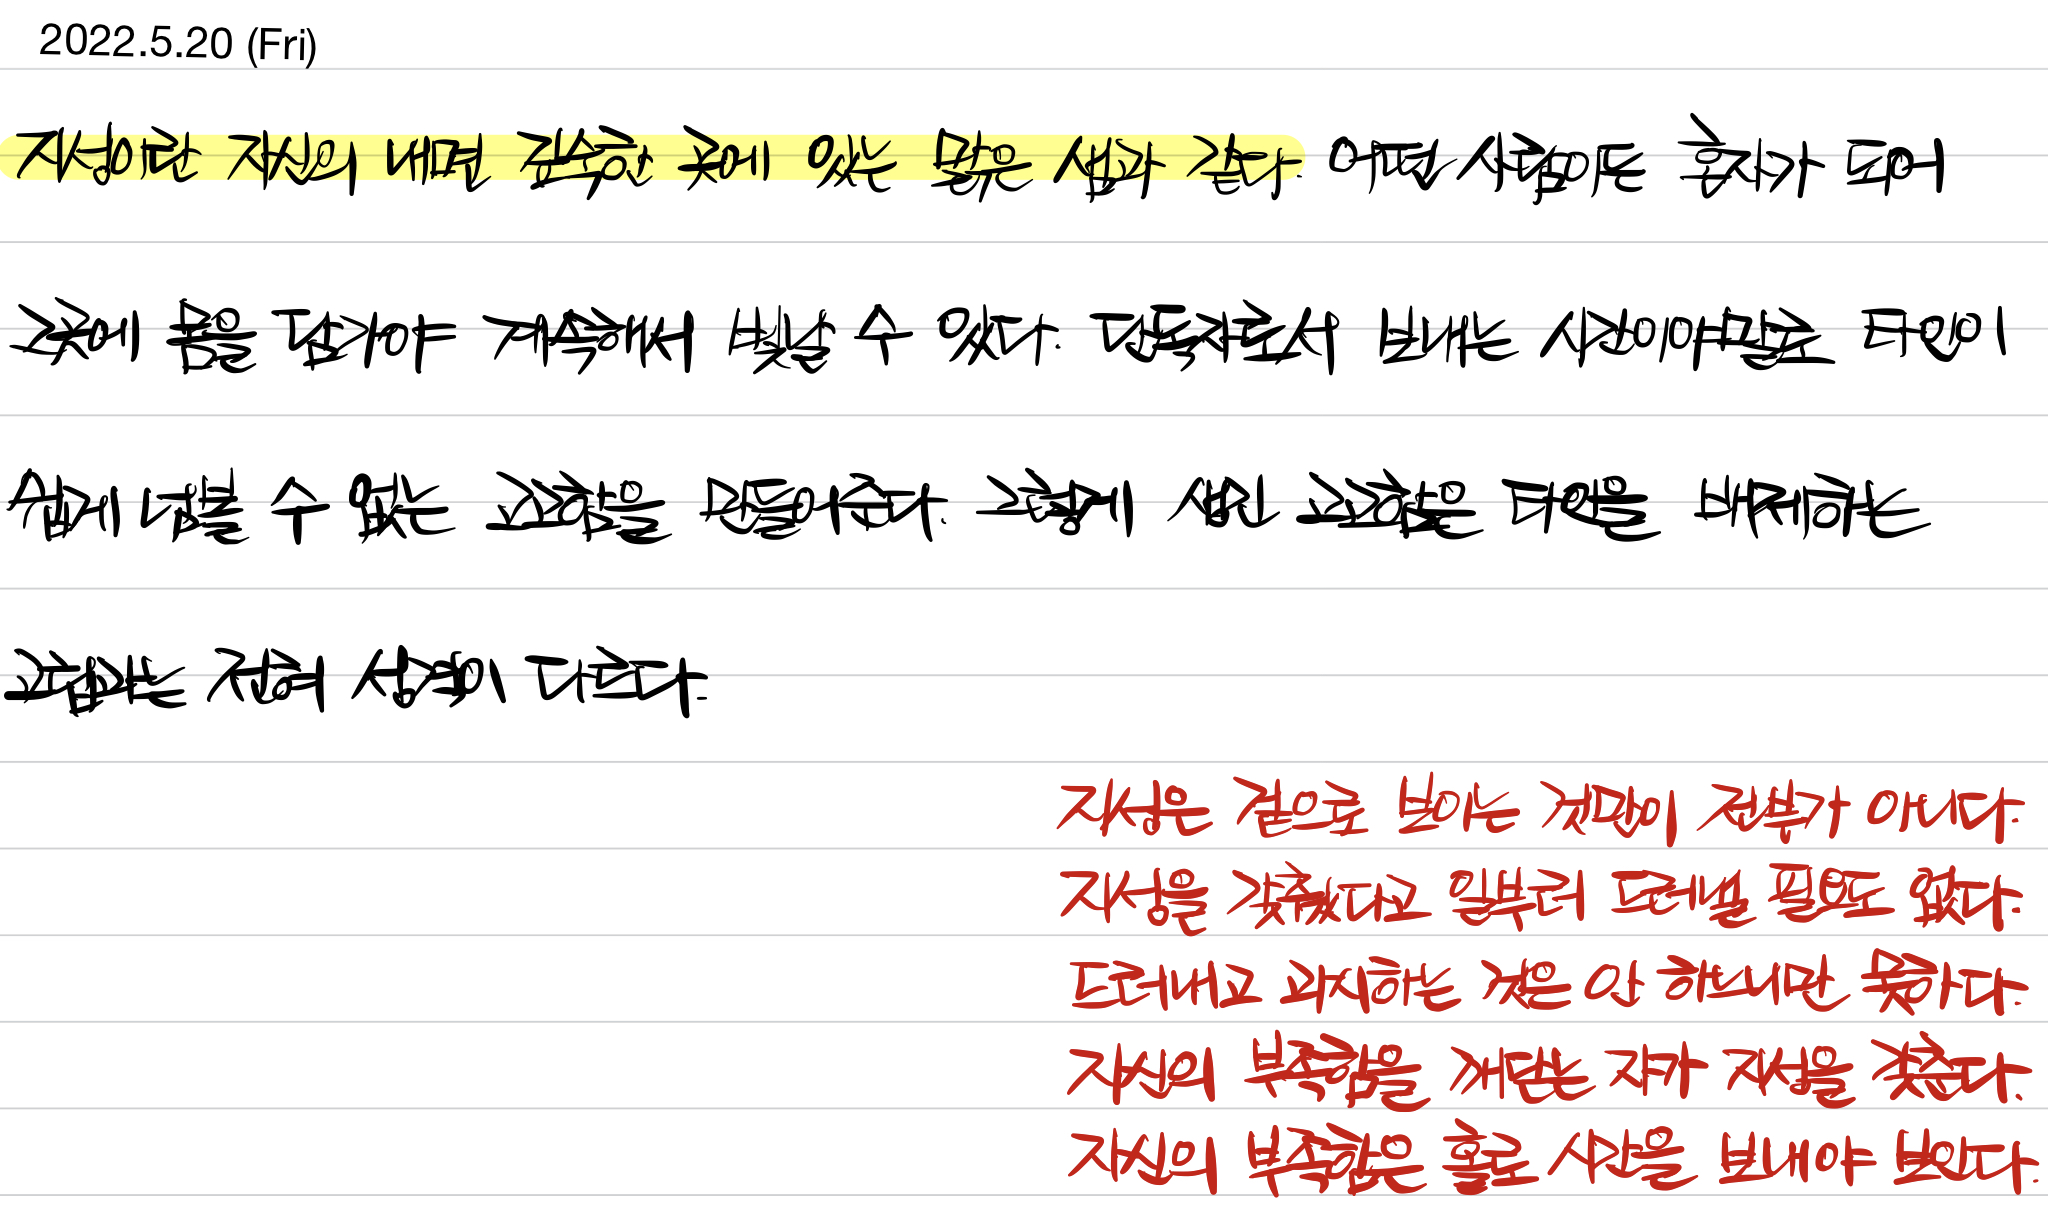 2022.5.20 (Fri)
지성이란 자신의 내면 깊숙한 곳에 있는 맑은 샘과 같다. 어떤 사람이든 혼자가 되어
그곳에 몸을 담가야 계속해서 빛날 수 있다. 단독자로서 보내는 시간이야말로 타인이
쉽게 넘볼 수 없는 고고함을 만들어준다. 그렇게 생긴 고고함은 타인을 배제하는
고립과는 전혀 성격이 다르다.
지성은 겉으로 보이는 것만이 전부가 아니다.
지성을 갖췄다고 일부러 드러낼 필요도 없다.
드러내고 과시하는 것은 안 하느니만 못하다.
자신의 부족함을 깨닫는 자가 지성을 갖춘다.
자신의 부족함은 홀로 시간을 보내야 보인다.